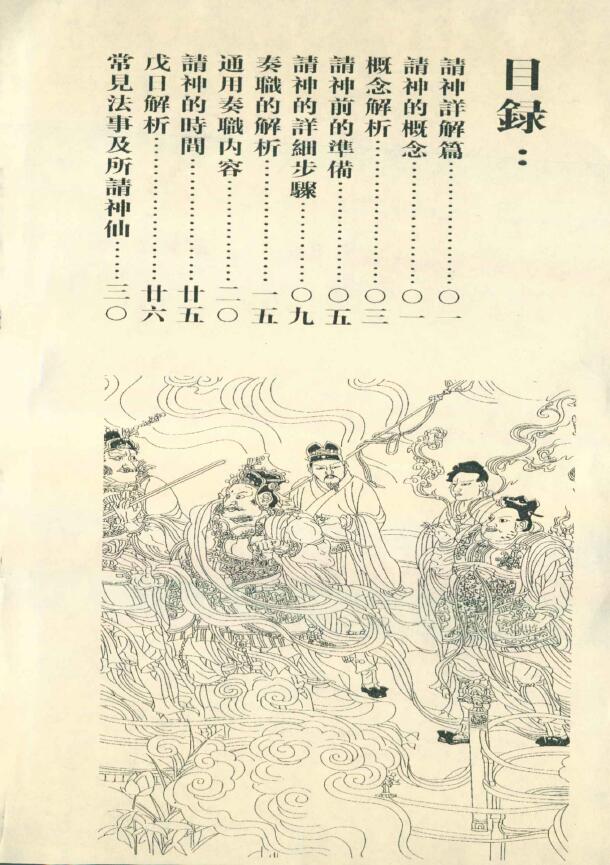 目録：
請神詳解篇………………〇一
請神的概念………………〇一
概念解析…………………〇三
請神前的準備……………〇五
請神的詳細步驟…………〇九
奏職的解析………………一五
通用奏職内容……………二〇
請神的時間………………廿五
戊日解析…………………廿六
常見法事及所請神仙……三〇